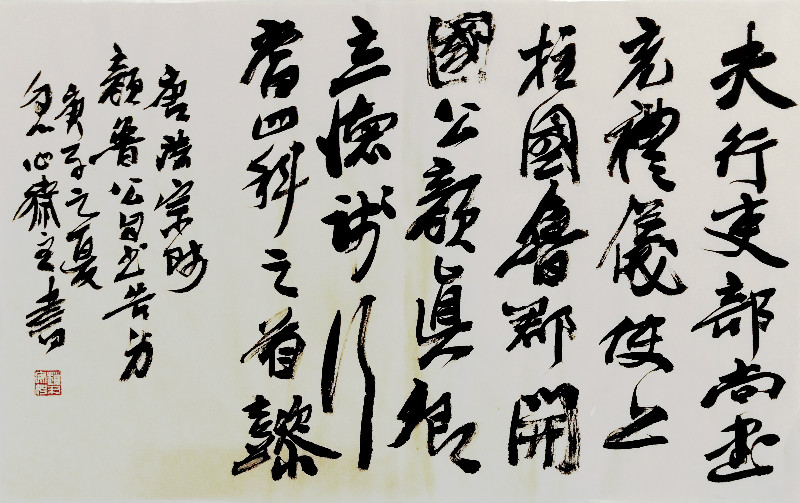 夫行吏部尚書
充禮儀使上
柱國魯郡開
國公顏眞卿
立德踐行
當四科之首懿
唐德宗時
顏魯公自書告身
庚子之夏
心齋主書